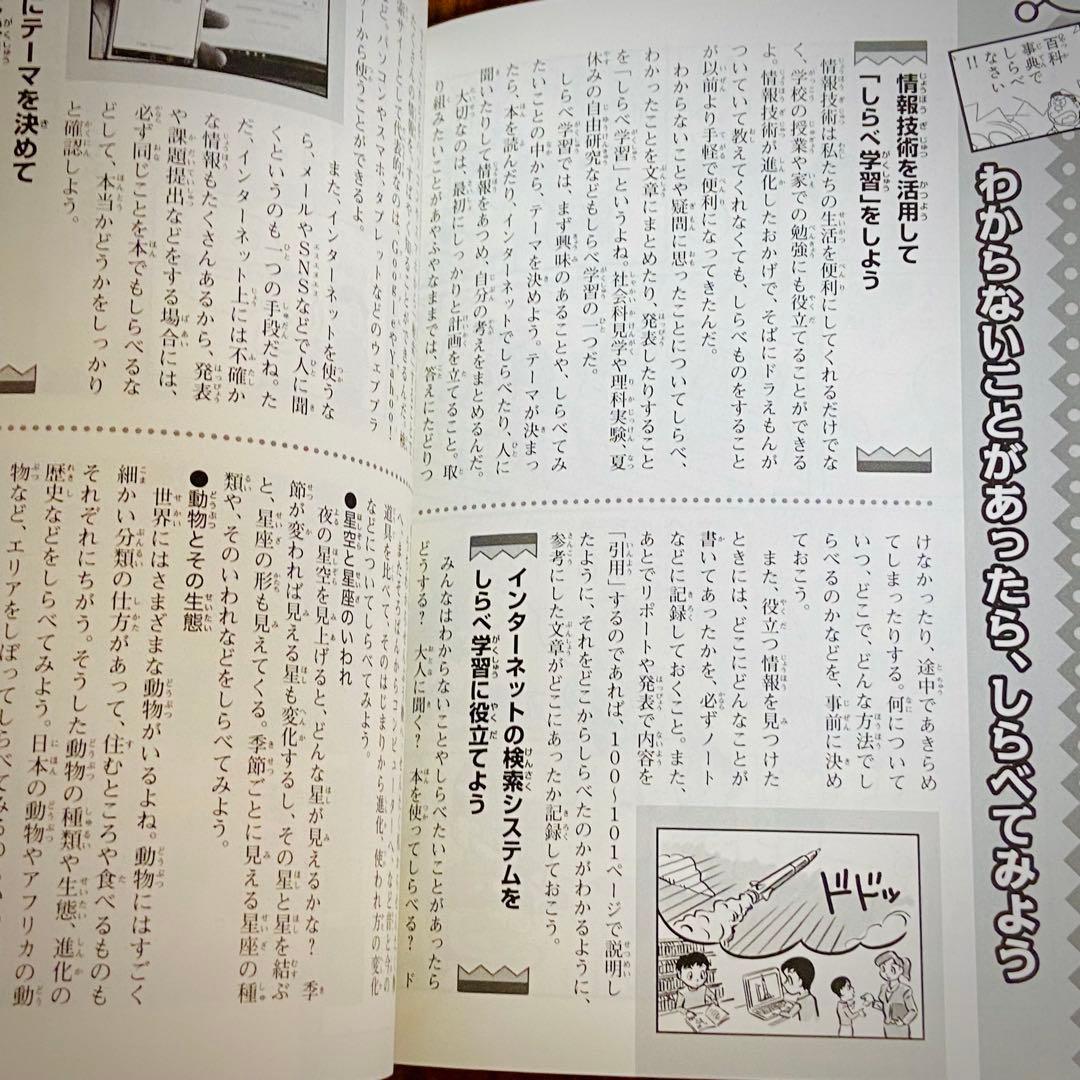 百科
事典で
しらべ
なさい
!!
わからないことがあったら、しらべてみよう
情報技術を活用して
「しらべ学習」をしよう
情報技術は私たちの生活を便利にしてくれるだけでな
く、学校の授業や家での勉強にも役立てることができる
よ。情報技術が進化したおかげで、そばにドラえもんが
ついていて教えてくれなくても、しらべものをすること
が以前より手軽で便利になってきたんだ。
わからないことや疑問に思ったことについてしらべ、
わかったことを文章にまとめたり、発表したりすること
を「しらべ学習」というよね。社会科見学や理科実験、夏
休みの自由研究などもしらべ学習の一つだ。
しらべ学習では、まず興味のあることや、しらべてみ
たいことの中から、テーマを決めよう。テーマが決まっ
たら、本を読んだり、インターネットでしらべたり、人に
聞いたりして情報をあつめ、自分の考えをまとめるんだ。
大切なのは、最初にしっかりと計画を立てること。取
り組みたいことがあやふやなままでは、答えにたどりつ
けなかったり、途中であきらめ
てしまったりする。何について
いつ、どこで、どんな方法でし
らべるのかなどを、事前に決め
ておこう。
また、役立つ情報を見つけた
ときには、どこにどんなことが
書いてあったかを、必ずノート
などに記録しておくこと。また、
あとでリポートや発表で内容を
「引用」するのであれば、100〜101ページで説明し
たように、それをどこからしらべたのかがわかるように、
参考にした文章がどこにあったか記録しておこう。
ドドッ
インターネットの検索システムを
しらべ学習に役立てよう
みんなはわからないことやしらべたいことがあったら
どうする? 大人に聞く? 本を使ってしらべる? ド
索サイトとして代表的なのは、GoogleやYahoo!
など。パソコンやスマホ、タブレットなどのウェブブラ
ザーから使うことができるよ。
また、インターネットを使うな
ら、メールやSNSなどで人に聞
くというのも一つの手段だね。た
だ、インターネット上には不確か
な情報もたくさんあるから、発表
や課題提出などをする場合には、
必ず同じことを本でもしらべるな
どして、本当かどうかをしっかり
と確認しよう。
にテーマを決めて
道具を比べて、そのはじまりから進化、使われ方の変化
などについてしらべてみよう。
●星空と星座のいわれ
夜の星空を見上げると、どんな星が見えるかな? 季
節が変われば見える星も変化するし、その星と星を結ぶ
と、星座の形も見えてくる。季節ごとに見える星座の種
類や、そのいわれなどをしらべてみよう。
●動物とその生態
世界にはさまざまな動物がいるよね。動物にはすごく
細かい分類の仕方があって、住むところや食べるものも
それぞれにちがう。そうした動物の種類や生態、進化の
歴史などをしらべてみよう。日本の動物やアフリカの動
物など、エリアをしぼってしらべてみるの